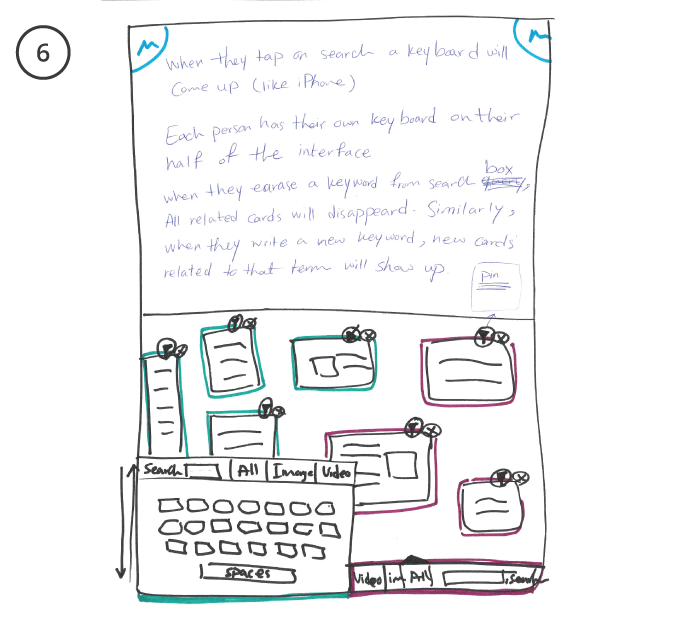 6
M
M
when they tap on search a keyboard will
come up (like iPhone)
Each person has their own keyboard on their
half of the interface
box
when they earase a keyword from search
All related cards will disappeard. Similarly,
when they write a new keyword, new cards
related to that term will show up.
Pin
Search All Image Video
spaces
Video im All Search